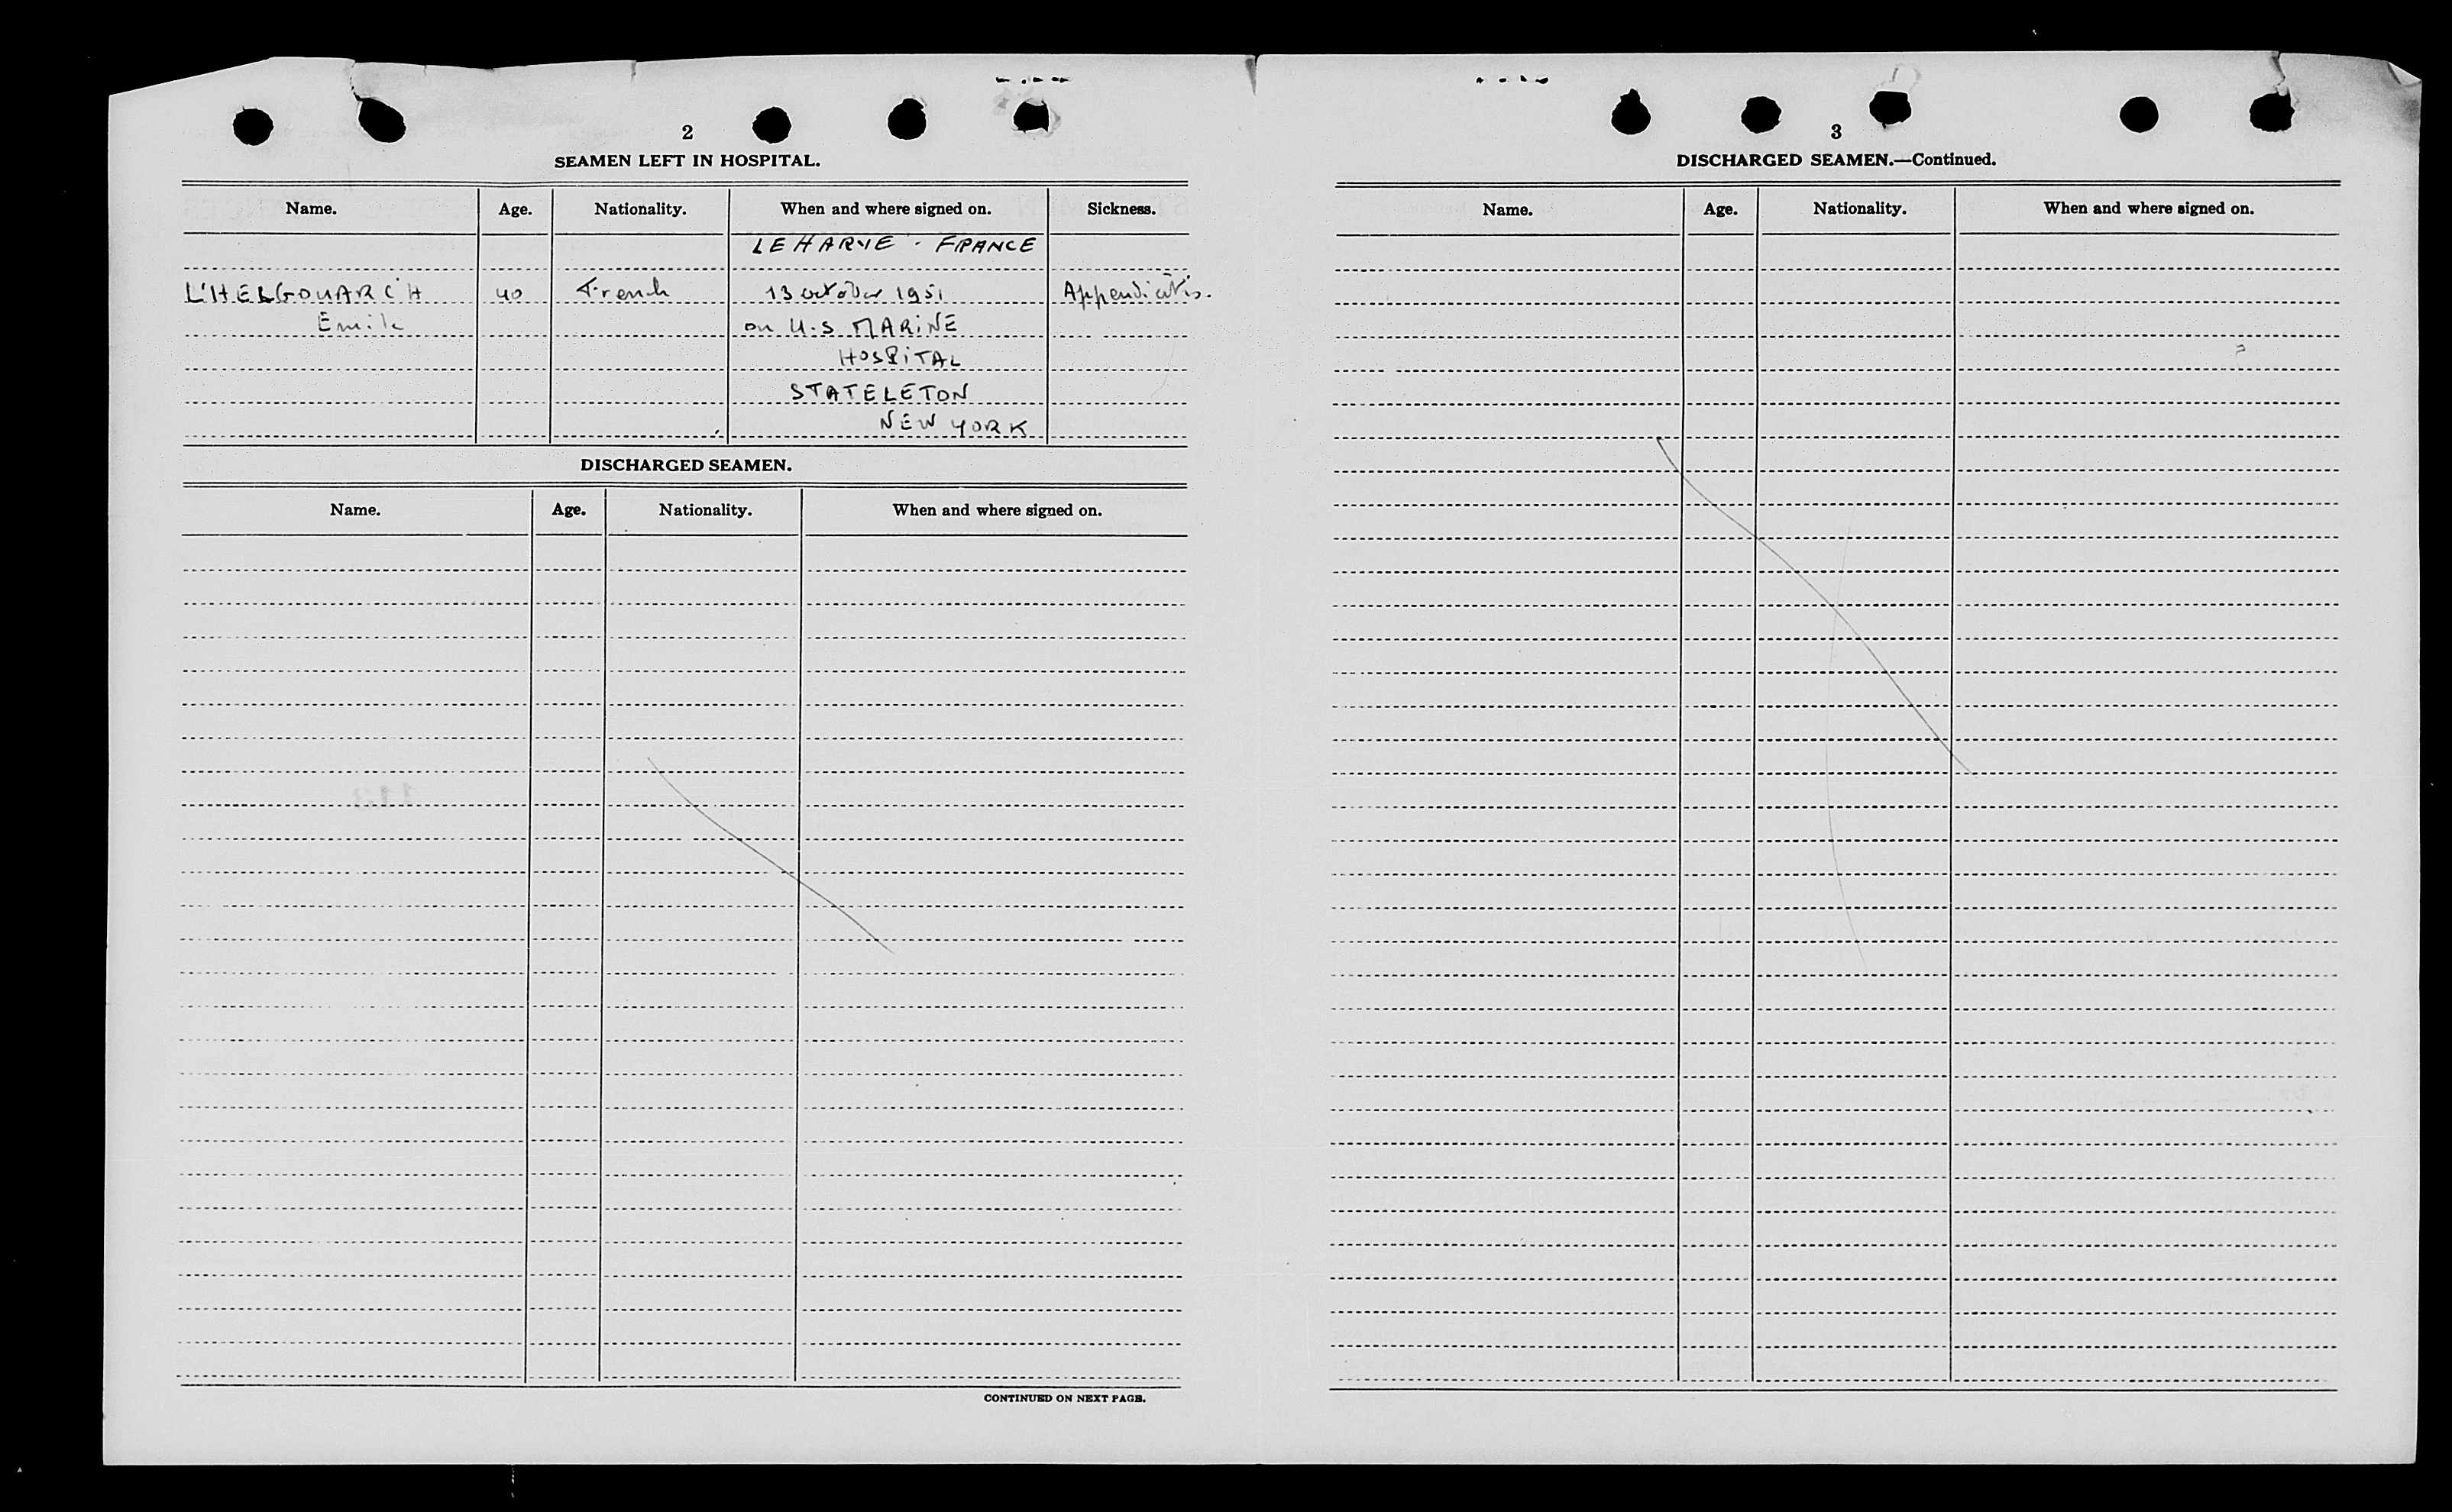 2
SEAMEN LEFT IN HOSPITAL.
Name. Age. Nationality. When and where signed on. Sickness.
LE HARVE - FRANCE
L'HELGOUARC'H 40 French 13 october 1951 Appendicitis.
Emile on U.S MARINE
HOSPITAL
STATELETON
NEW YORK
DISCHARGED SEAMEN.
Name. Age. Nationality. When and where signed on.
CONTINUED ON NEXT PAGE.
3
DISCHARGED SEAMEN.—Continued.
Name. Age. Nationality. When and where signed on.